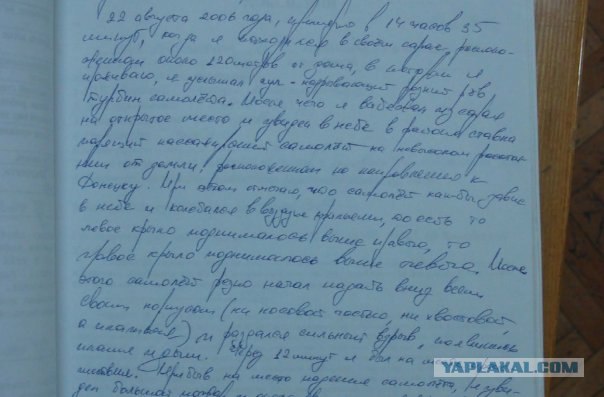 22 августа 2006 года, примерно в 14 часов 35
минут, когда я находился в своём сарае, располо-
женном около 120 метров от дома, в котором я
проживаю, я услышал гул - надрывающий рев,
турбин самолёта. После чего я выбежал из сарая
на открытое место и увидел в небе в районе ставка
пассажирский самолёт на невысоком расстоя-
нии от земли, по направлению к
Донецку. При этом отмечаю, что самолёт как бы завис
в небе и колебался в воздухе крыльями, то есть то
левое крыло поднималось выше правого, то
правое крыло поднималось выше левого. После
этого самолёт резко начал падать вниз всем
своим корпусом (ни носовой частью, ни хвостовой,
а плашмя) и раздался сильный взрыв, появилось
пламя и дым. Через 12 минут я был на
Прибыв на место падения самолёта, я уви-
дел большой
YAPLAKAL.COM